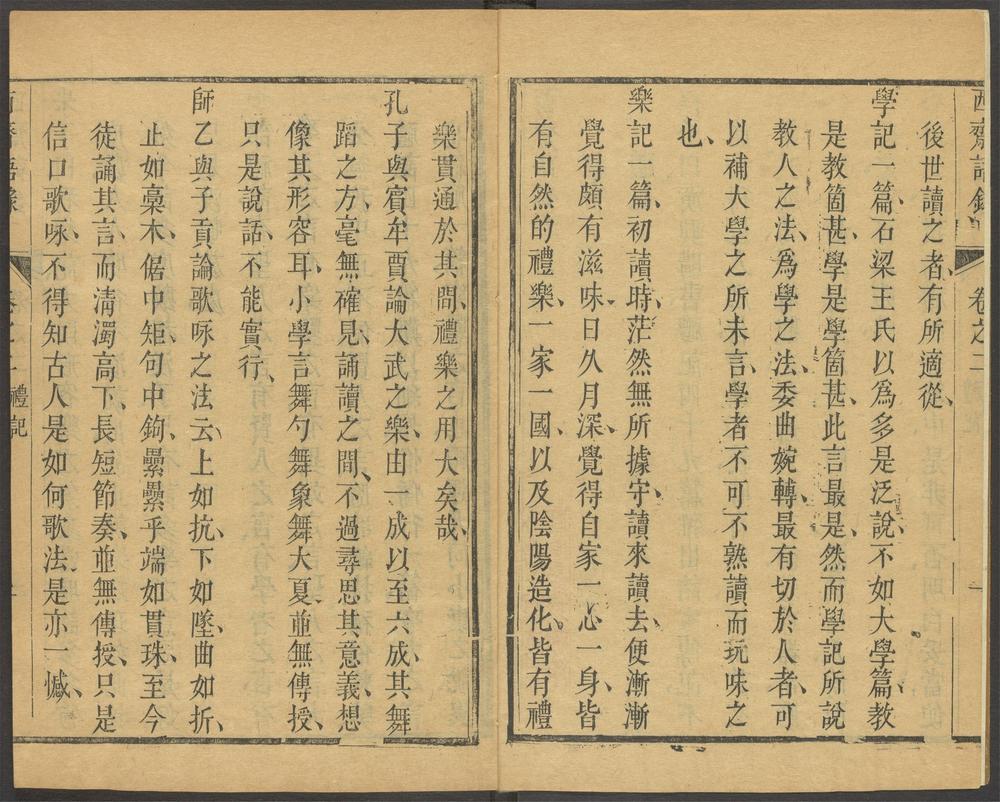 西齋語錄 卷之二
後世讀之者、有所適從、
學記一篇、石梁王氏以爲多是泛說、不如大學篇、教
是教箇甚、學是學箇甚、此言最是、然而學記所說
教人之法、爲學之法、委曲婉轉、最有切於人者、可
以補大學之所未言、學者不可不熟讀而玩味之
也、
樂記一篇、初讀時、茫然無所據守、讀來讀去、便漸漸
覺得頗有滋味、日久月深、覺得自家一心一身、皆
有自然的禮樂、一家一國、以及陰陽造化、皆有禮
樂貫通於其間、禮樂之用大矣哉、
孔子與賓牟賈論大武之樂、由一成以至六成、其舞
蹈之方、毫無確見、誦讀之間、不過尋思其意義、想
像其形容耳、小學言舞勺舞象舞大夏、並無傳授、
只是說話、不能實行、
師乙與子貢論歌咏之法云、上如抗、下如墜、曲如折、
止如槀木、倨中矩、句中鉤、纍纍乎端如貫珠、至今
徒誦其言、而淸濁高下、長短節奏、並無傳授、只是
信口歌咏、不得知古人是如何歌法、是亦一憾、
禮記